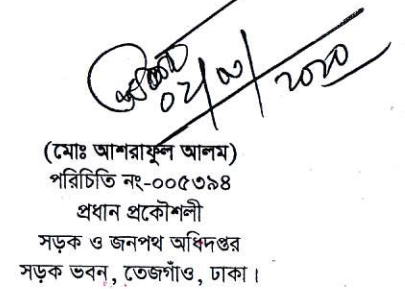 ০২/৩/২০২০
(মোঃ আশরাফুল আলম)
পরিচিতি নং-০০৫৩৯৪
প্রধান প্রকৌশলী
সড়ক ও জনপথ অধিদপ্তর
সড়ক ভবন, তেজগাঁও, ঢাকা।